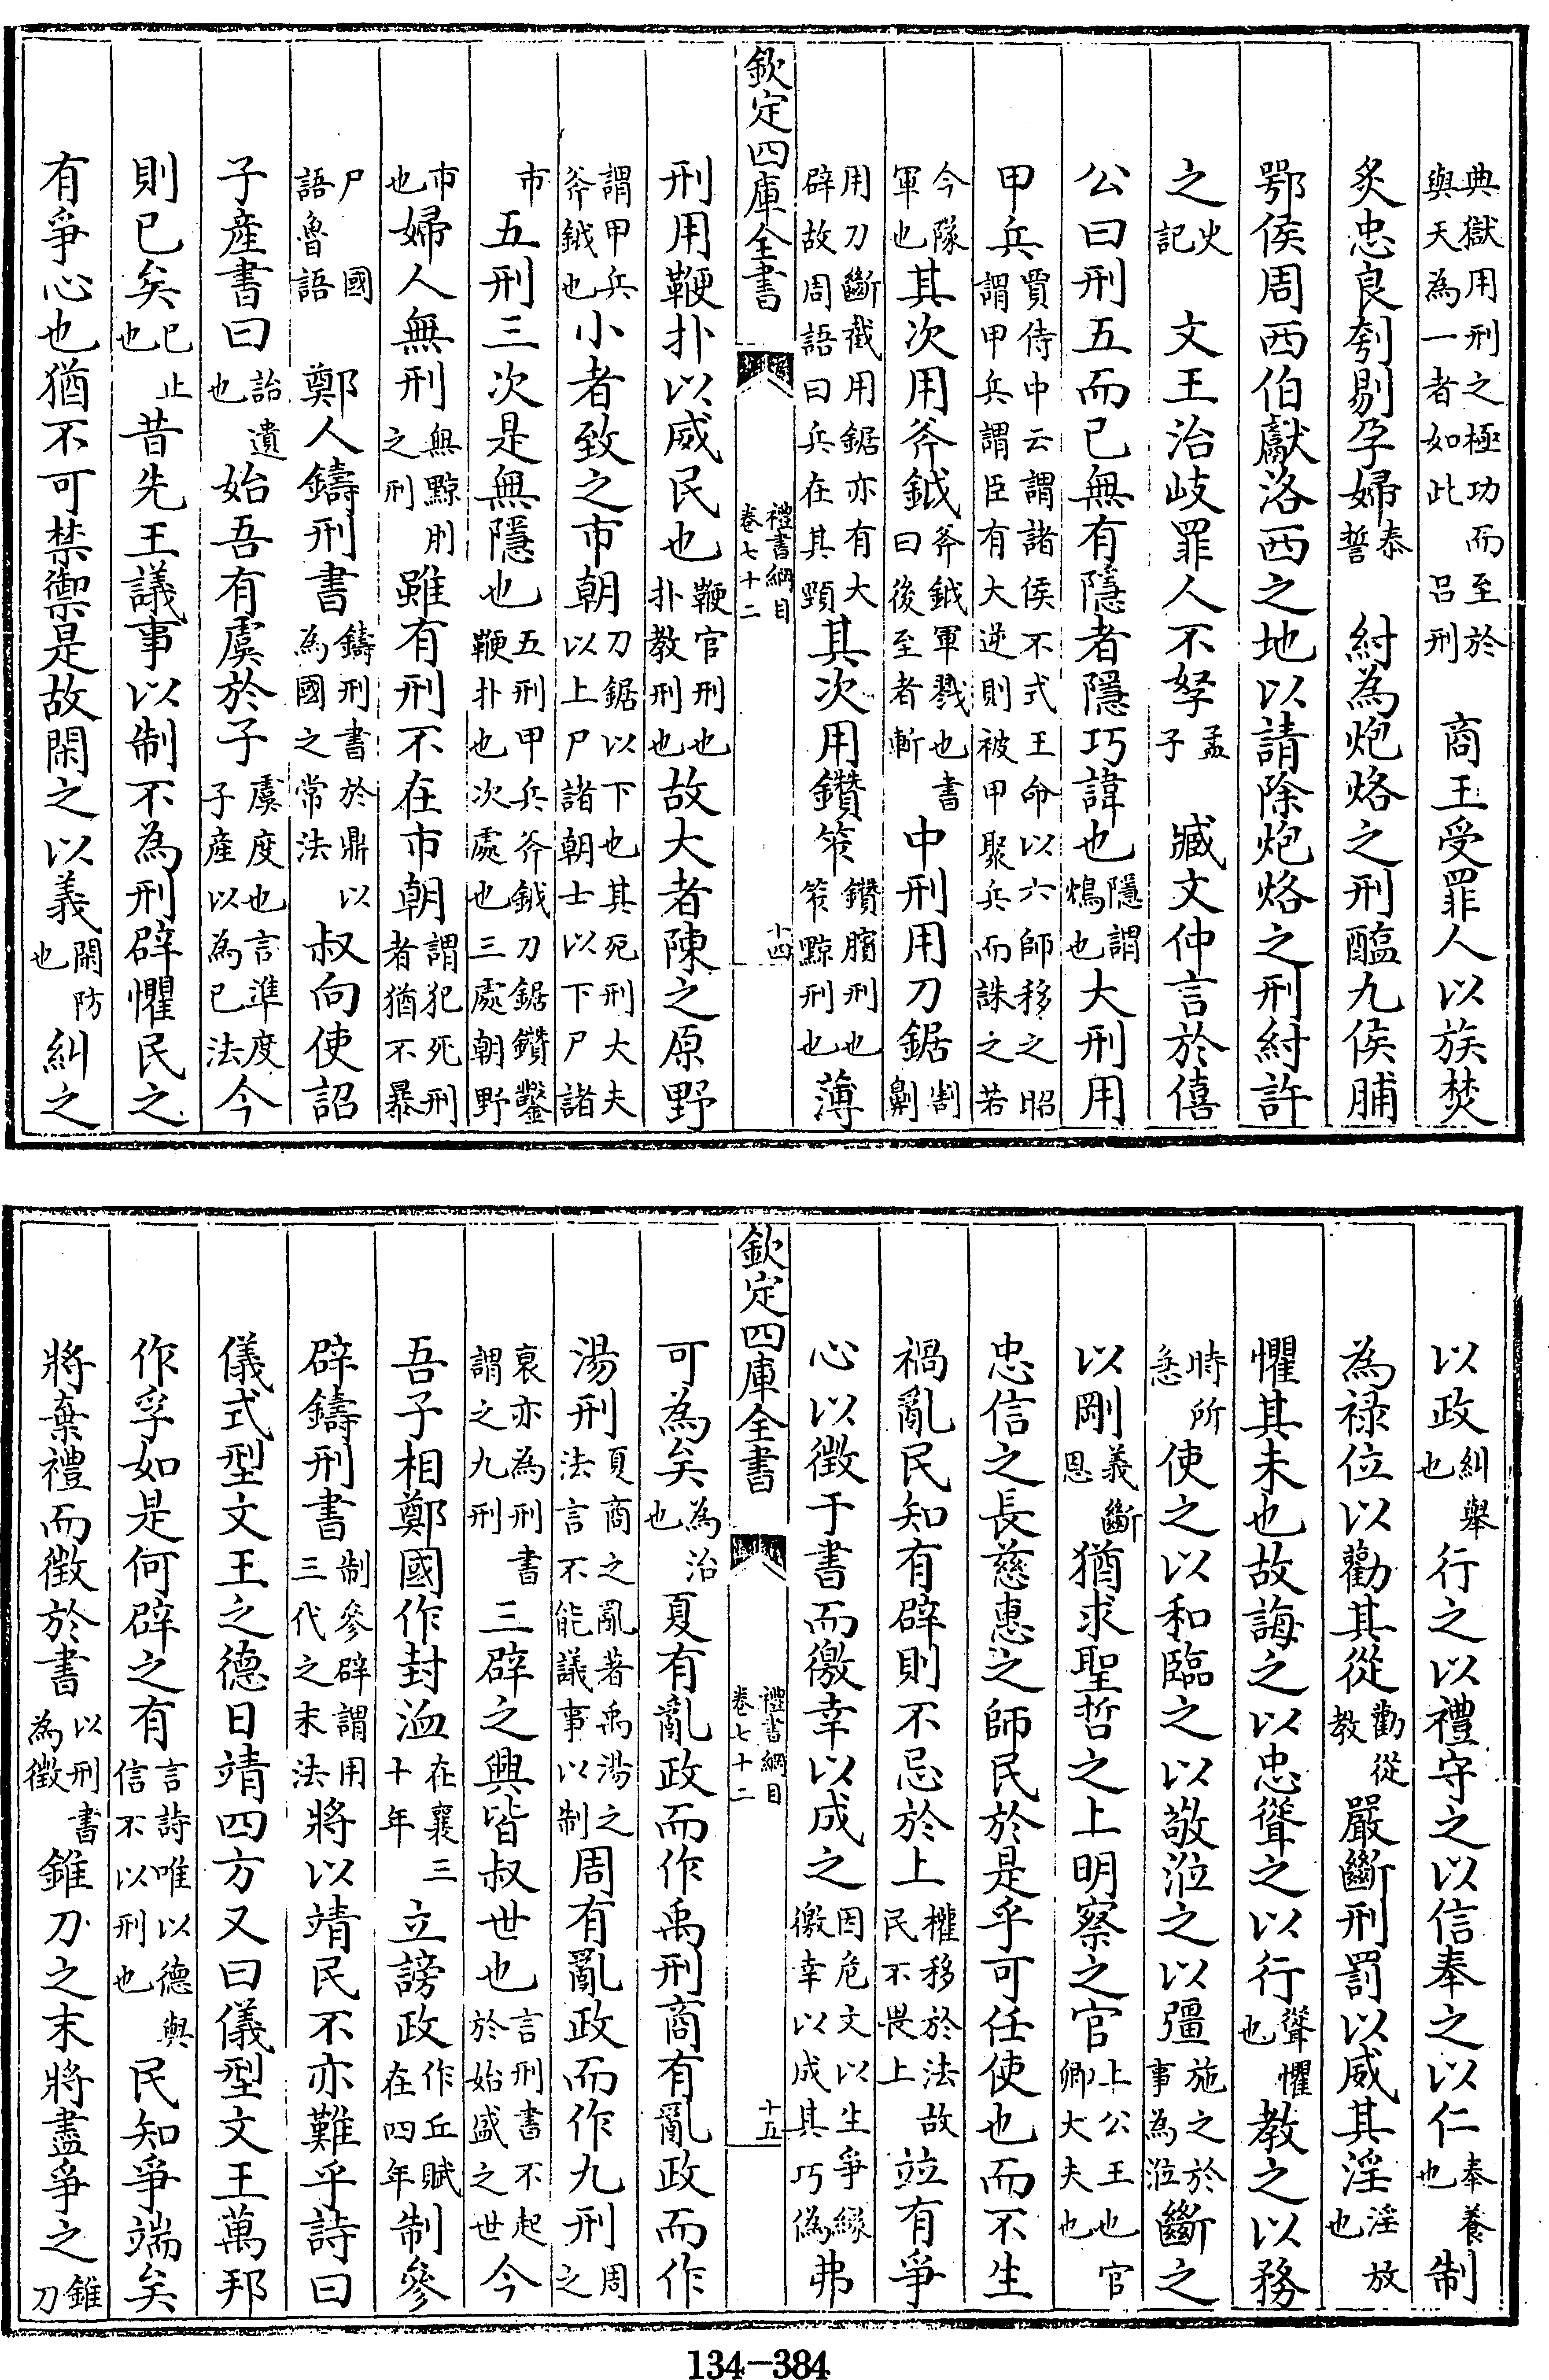 典獄用刑之極功而至於與天為一者如此呂刑　商王受罪人以族焚
炙忠良刳剔孕婦泰誓　紂為炮烙之刑醢九侯脯
鄂侯周西伯獻洛西之地以請除炮烙之刑紂許
之史記　文王治岐罪人不孥孟子　臧文仲言於僖
公曰刑五而已無有隱者隱巧諱也隱謂鴆也大刑用
甲兵賈侍中云謂諸侯不式王命以六師移之昭謂甲兵謂臣有大逆則被甲聚兵而誅之若
今隊軍也其次用斧鉞斧鉞軍戮也書曰後至者斬中刑用刀鋸割劓
用刀斷截用鋸亦有大辟故周語曰兵在其頸其次用鑽笮鑽臏刑也笮黥刑也薄
欽定四庫全書　禮書綱目卷七十二　十四
刑用鞭扑以威民也鞭官刑也扑教刑也故大者陳之原野
謂甲兵斧鉞也小者致之市朝刀鋸以下也其死刑大夫以上尸諸朝士以下尸諸
市五刑三次是無隱也五刑甲兵斧鉞刀鋸鑽鑿鞭扑也次處也三處朝野
市也婦人無刑無黥刖之刑雖有刑不在市朝謂犯死刑者猶不暴
尸國語魯語　鄭人鑄刑書鑄刑書於鼎以為國之常法叔向使詒
子產書曰詒遺也始吾有虞於子虞度也言準度子產以為已法今
則已矣已止也昔先王議事以制不為刑辟懼民之
有爭心也猶不可禁禦是故閑之以義閑防也糾之
以政糾舉也行之以禮守之以信奉之以仁奉養也制
為祿位以勸其從勸從教嚴斷刑罰以威其淫淫放也
懼其未也故誨之以忠聳之以行聳懼也教之以務
時所急使之以和臨之以敬涖之以彊施之於事為涖斷之
以剛義斷恩猶求聖哲之上明察之官上公王也官卿大夫也
忠信之長慈惠之師民於是乎可任使也而不生
禍亂民知有辟則不忌於上權移於法故民不畏上竝有爭
心以徵于書而徼幸以成之因危文以生爭緣徼幸以成其巧偽弗
欽定四庫全書　禮書綱目卷七十二　十五
可為矣為治也夏有亂政而作禹刑商有亂政而作
湯刑夏商之亂著禹湯之法言不能議事以制周有亂政而作九刑周之
衰亦為刑書謂之九刑三辟之興皆叔世也言刑書不起於始盛之世今
吾子相鄭國作封洫在襄三十年立謗政作丘賦在四年制參
辟鑄刑書制參辟謂用三代之末法將以靖民不亦難乎詩曰
儀式型文王之德日靖四方又曰儀型文王萬邦
作孚如是何辟之有言詩唯以德與信不以刑也民知爭端矣
將棄禮而徵於書以刑書為徵錐刀之末將盡爭之錐刀
134-384